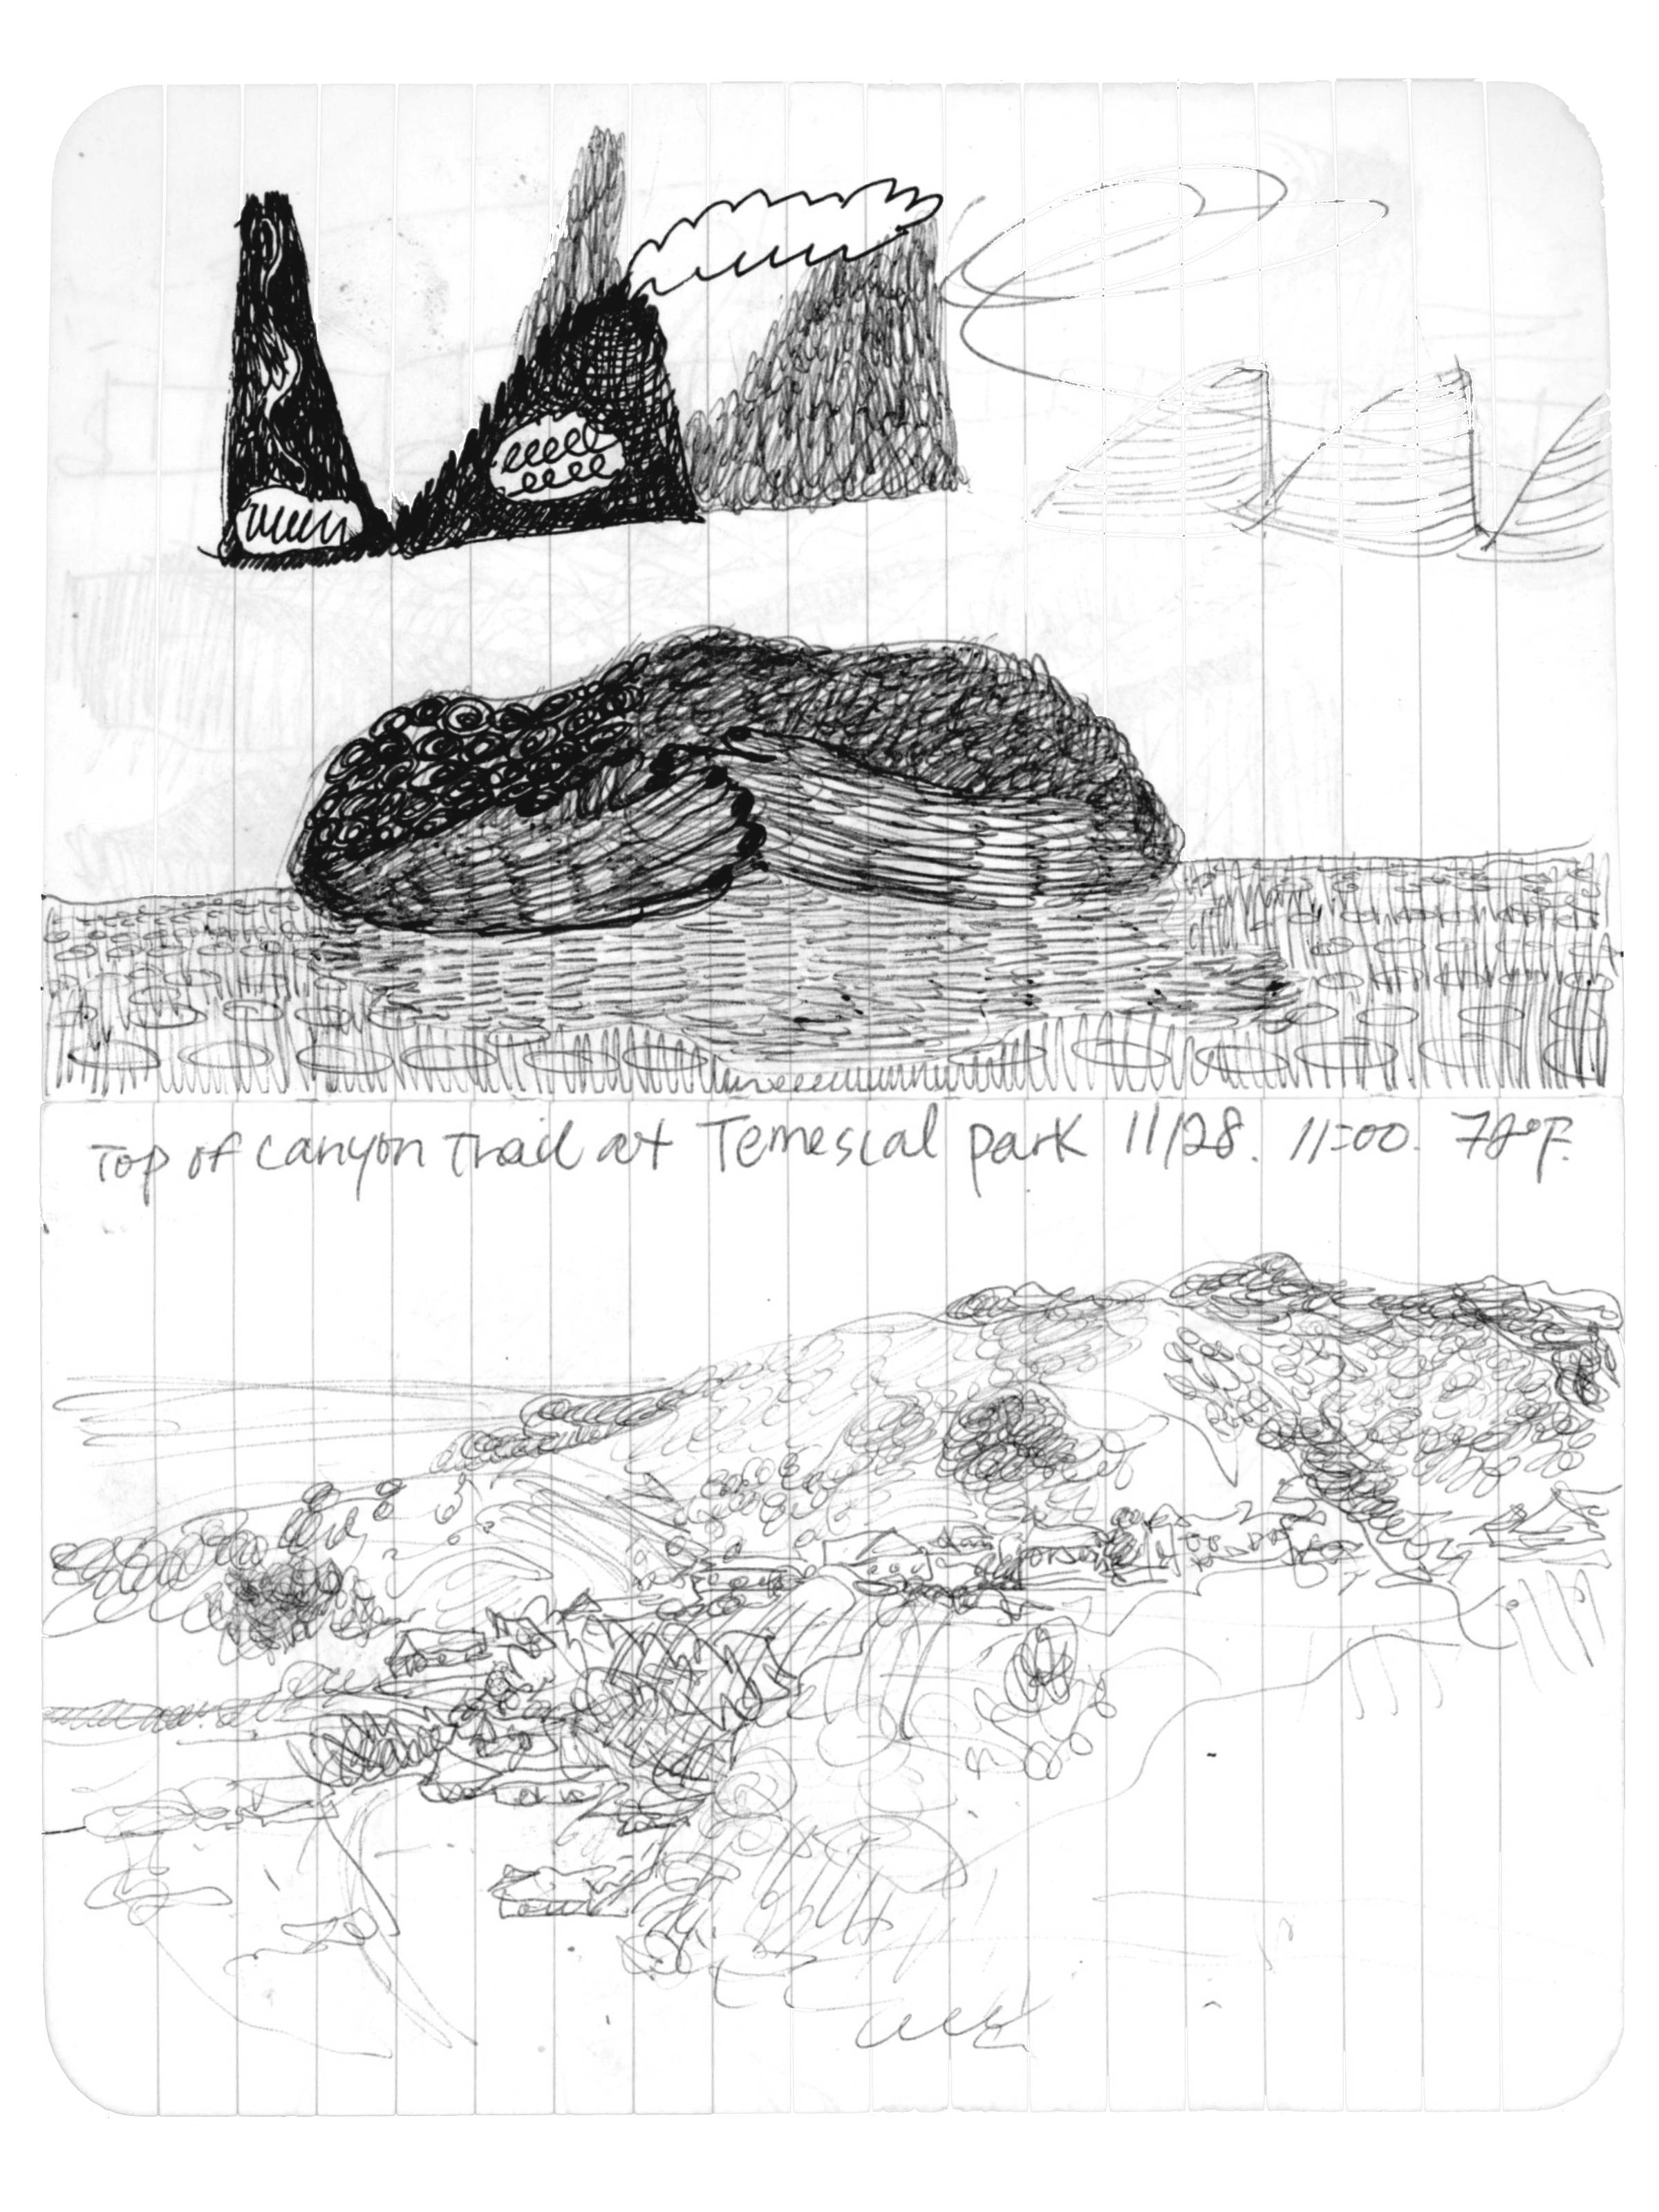 Top of canyon Trail at Temescal park 11/28. 11:00. 78°F.